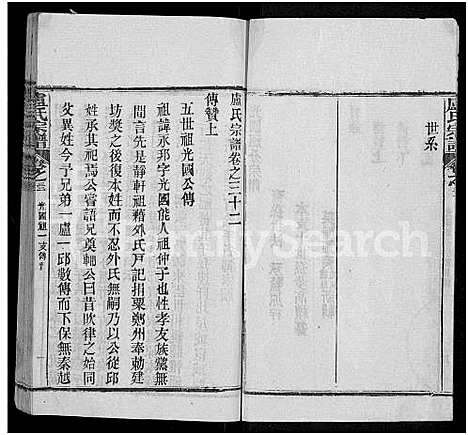 世系
盧氏宗譜卷之三十二
傳贊上
五世祖光國公傳
祖諱永邦字光國能人祖仲子也性孝友族黨無
間言先是靜軒祖藉外氏戶記捐粟鄭州奉勅建
坊獎之後復本姓而不忍外氏無嗣乃以公從邱
姓承其祀焉公嘗語兄奠軛公曰昔欧律之始同
父異姓今予兄弟一盧一邱數傳而下保無秦越
盧氏宗譜
光國祖一支傳
FamilySearch